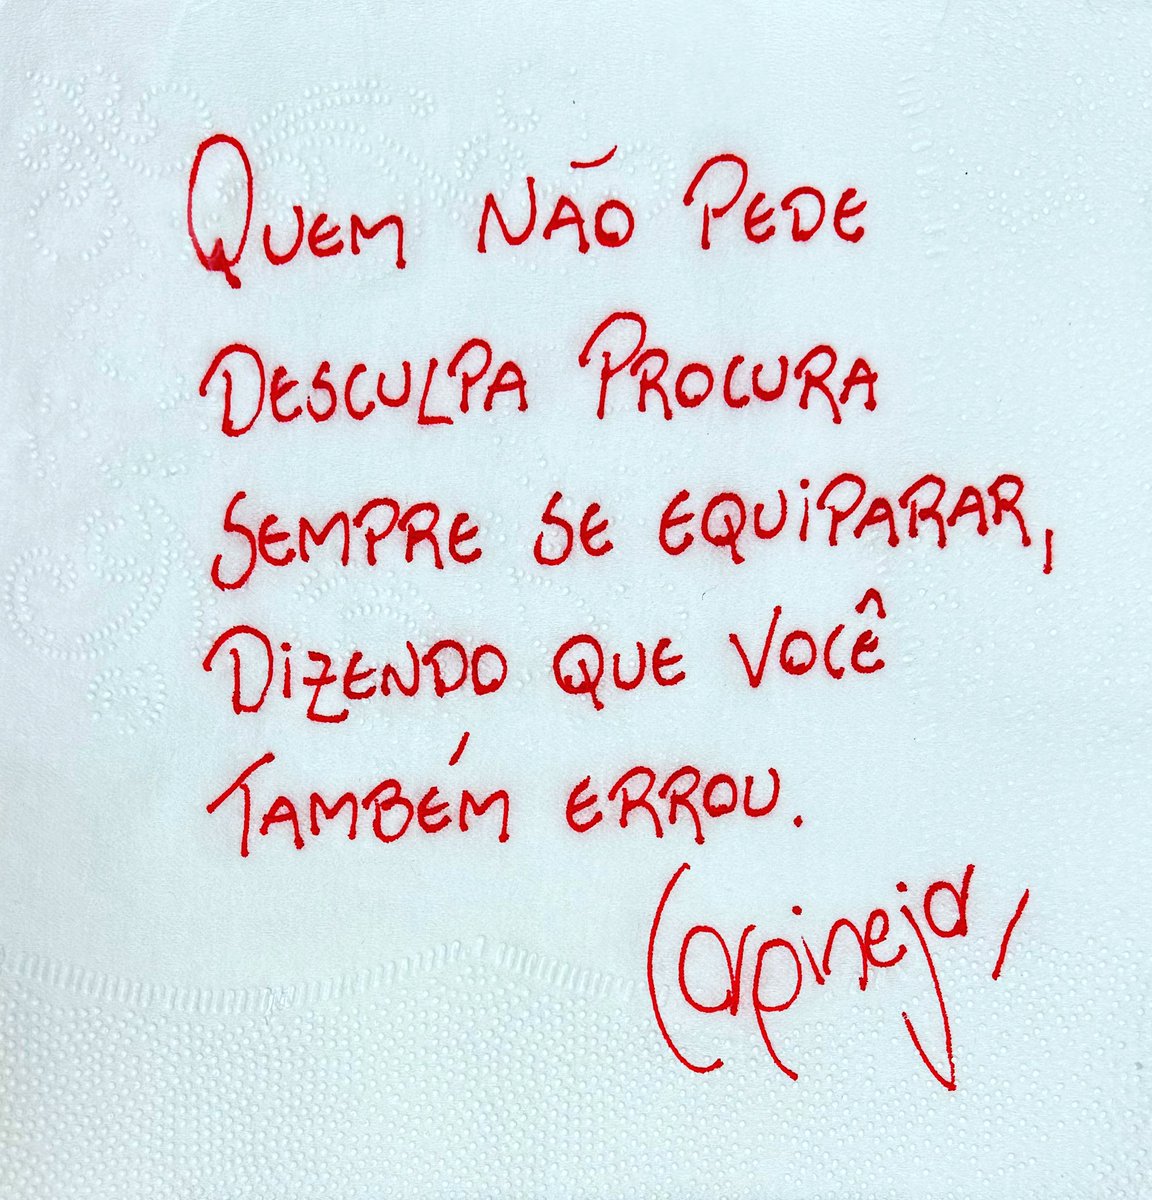 QUEM NÃO PEDE
DESCULPA PROCURA
SEMPRE SE EQUIPARAR,
DIZENDO QUE VOCÊ
TAMBÉM ERROU.
Carpinejar